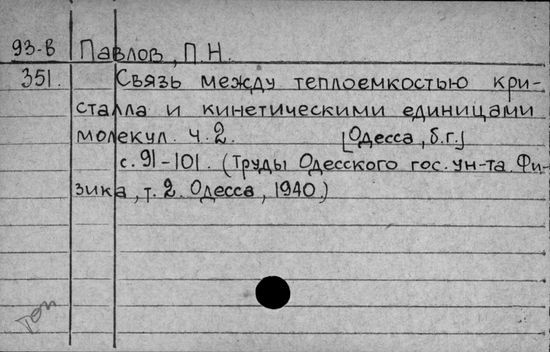 93-В Павлов, П.Н.
351. Связь между теплоемкостью кри-
сталла и кинетическими единицами
молекул. Ч.2. [Одесса, б.г.]
с. 91-101. (Труды Одесского гос. ун-та. Фи-
зика, т. 2. Одесса, 1940.)